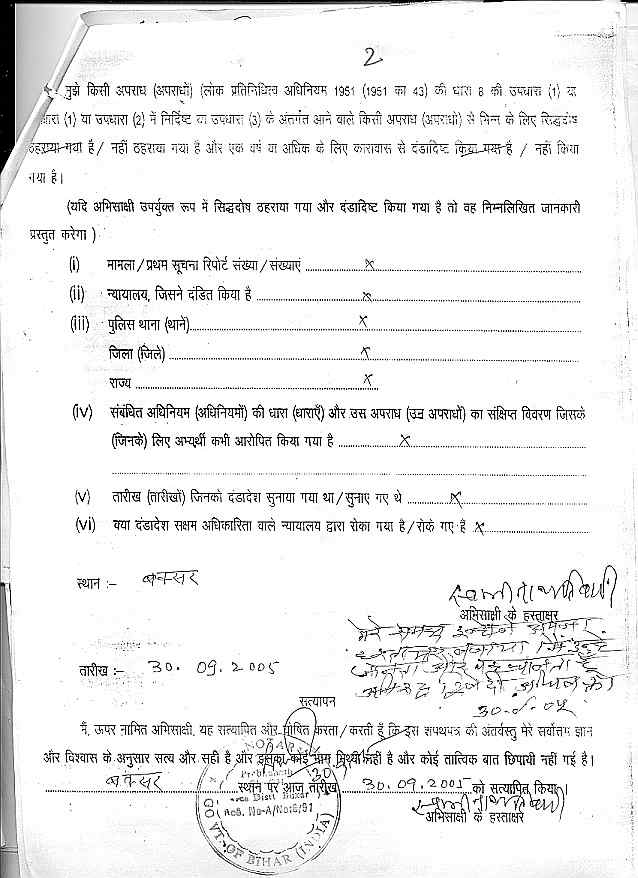 2
मुझे किसी अपराध (अपराधों) (लोक प्रतिनिधित्व अधिनियम 1951 (1951 का 43) की धारा 8 की उपधारा (1) या
धारा (1) या उपधारा (2) में निर्दिष्ट या उपधारा (3) के अंतर्गत आने वाले किसी अपराध (अपराधों) से भिन्न के लिए सिद्धदोष
ठहराया गया है / नहीं ठहराया गया है और एक वर्ष या अधिक के लिए कारावास से दंडादिष्ट किया गया है / नहीं किया
गया है।
(यदि अभिसाक्षी उपर्युक्त रूप में सिद्धदोष ठहराया गया और दंडादिष्ट किया गया है तो वह निम्नलिखित जानकारी
प्रस्तुत करेगा )
(i) मामला / प्रथम सूचना रिपोर्ट संख्या / संख्याएं ..... x .....
(ii) न्यायालय, जिसने दंडित किया है ..... x .....
(iii) पुलिस थाना (थाने) ..... x .....
जिला (जिले) ..... x .....
राज्य ..... x
(iv) संबंधित अधिनियम (अधिनियमों) की धारा (धाराएँ) और उस अपराध (उन अपराधों) का संक्षिप्त विवरण जिसके
(जिनके) लिए अभ्यर्थी कभी आरोपित किया गया है ..... x .....
(v) तारीख (तारीखों) जिनको दंडादेश सुनाया गया था / सुनाए गए थे ..... x .....
(vi) क्या दंडादेश सक्षम अधिकारिता वाले न्यायालय द्वारा रोका गया है / रोके गए है x .....
स्थान :- बक्सर
अभिसाक्षी के हस्ताक्षर
मेरे समक्ष
तारीख :- 30. 09. 2005
सत्यापन
मैं, ऊपर नामित अभिसाक्षी, यह सत्यापित और घोषित करता / करती हूँ कि इस शपथपत्र की अंतर्वस्तु मेरे सर्वोत्तम ज्ञान
और विश्वास के अनुसार सत्य और सही है और इसका कोई भाग मिथ्या नहीं है और कोई तात्विक बात छिपायी नहीं गई है।
बक्सर स्थान पर आज तारीख 30. 09. 2005 को सत्यापित किया।
अभिसाक्षी के हस्ताक्षर
NOTARY
GOVT. OF BIHAR (INDIA)